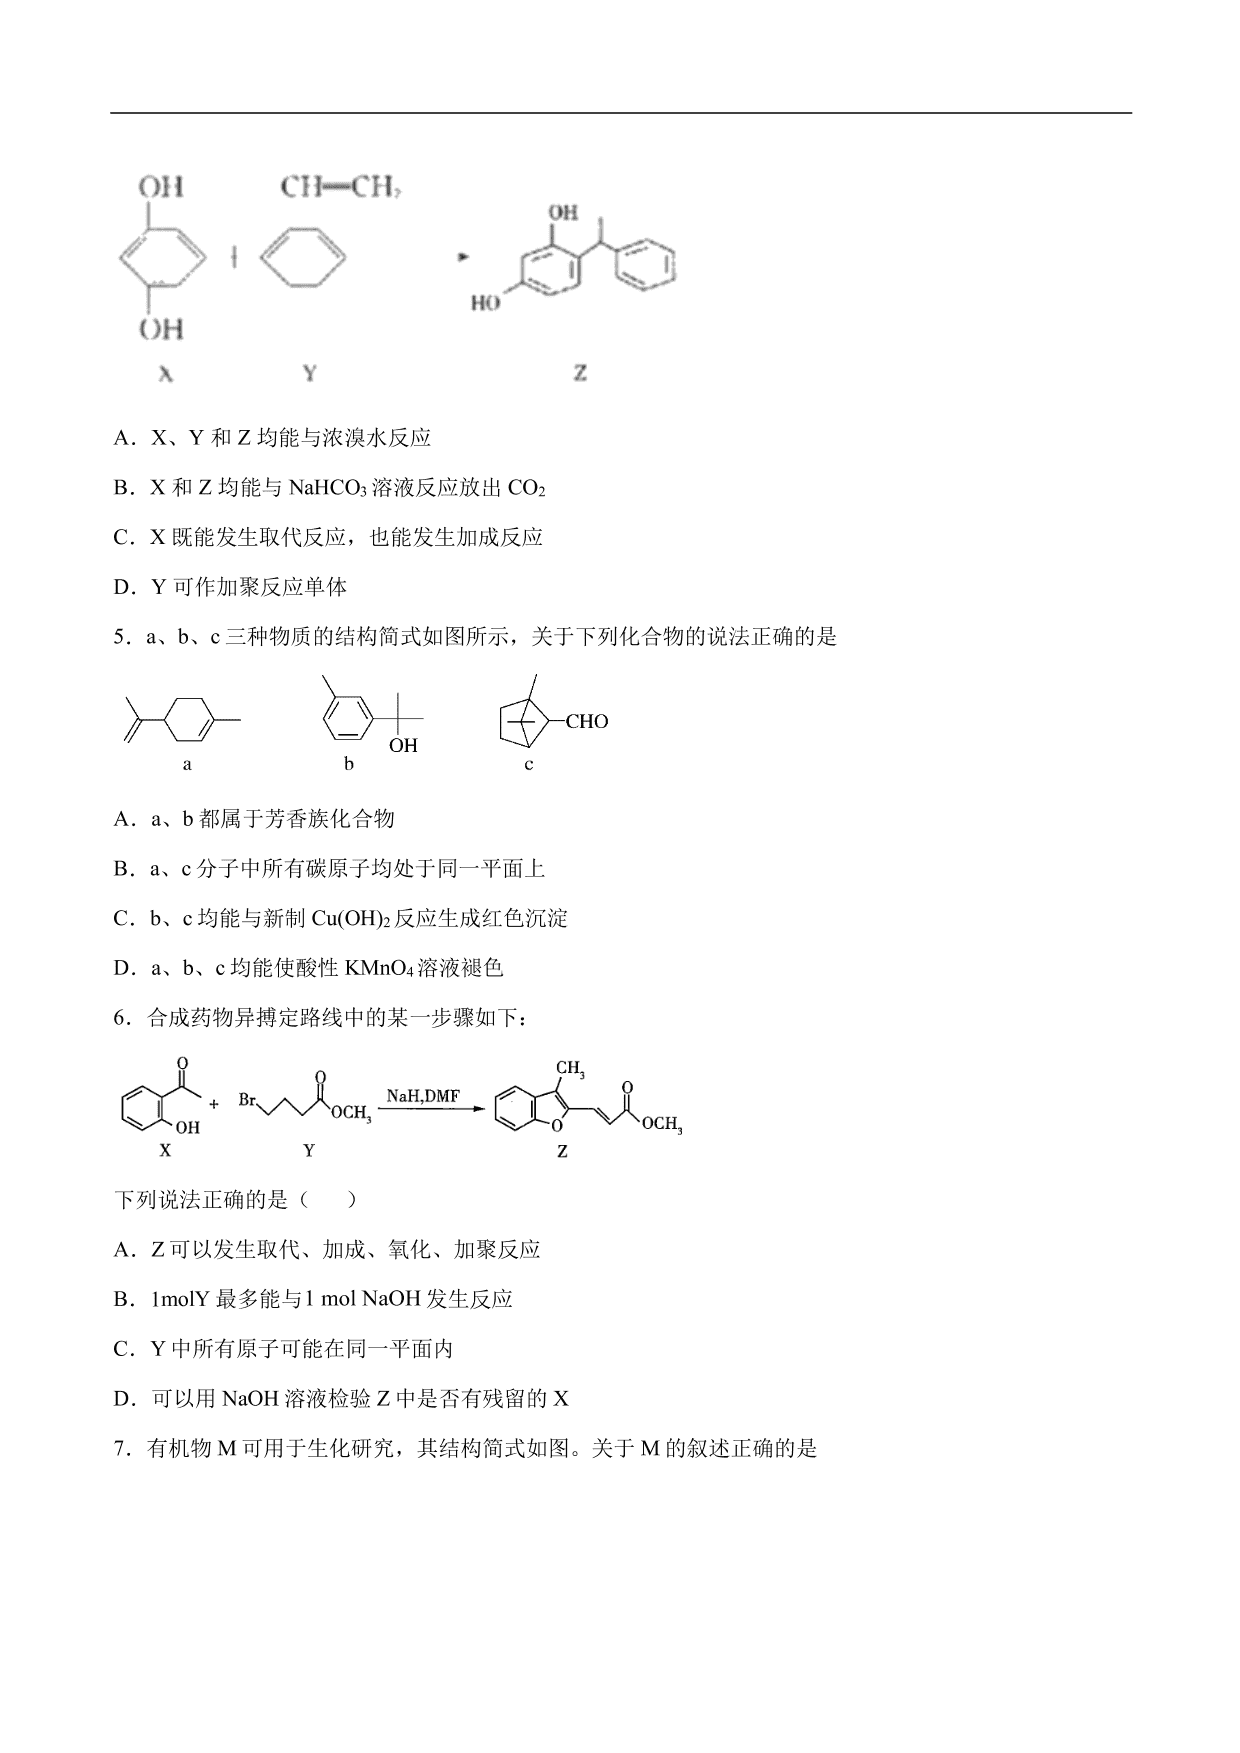 OH CH═CH₂
OH
HO
OH
X Y Z
A．X、Y 和 Z 均能与浓溴水反应
B．X 和 Z 均能与 NaHCO₃ 溶液反应放出 CO₂
C．X 既能发生取代反应，也能发生加成反应
D．Y 可作加聚反应单体
5．a、b、c 三种物质的结构简式如图所示，关于下列化合物的说法正确的是
CHO
OH
a b c
A．a、b 都属于芳香族化合物
B．a、c 分子中所有碳原子均处于同一平面上
C．b、c 均能与新制 Cu(OH)₂ 反应生成红色沉淀
D．a、b、c 均能使酸性 KMnO₄ 溶液褪色
6．合成药物异搏定路线中的某一步骤如下：
O CH₃
Br O NaH,DMF O
+ OCH₃ OCH₃
OH O
X Y Z
下列说法正确的是（ ）
A．Z 可以发生取代、加成、氧化、加聚反应
B．1molY 最多能与1 mol NaOH 发生反应
C．Y 中所有原子可能在同一平面内
D．可以用 NaOH 溶液检验 Z 中是否有残留的 X
7．有机物 M 可用于生化研究，其结构简式如图。关于 M 的叙述正确的是